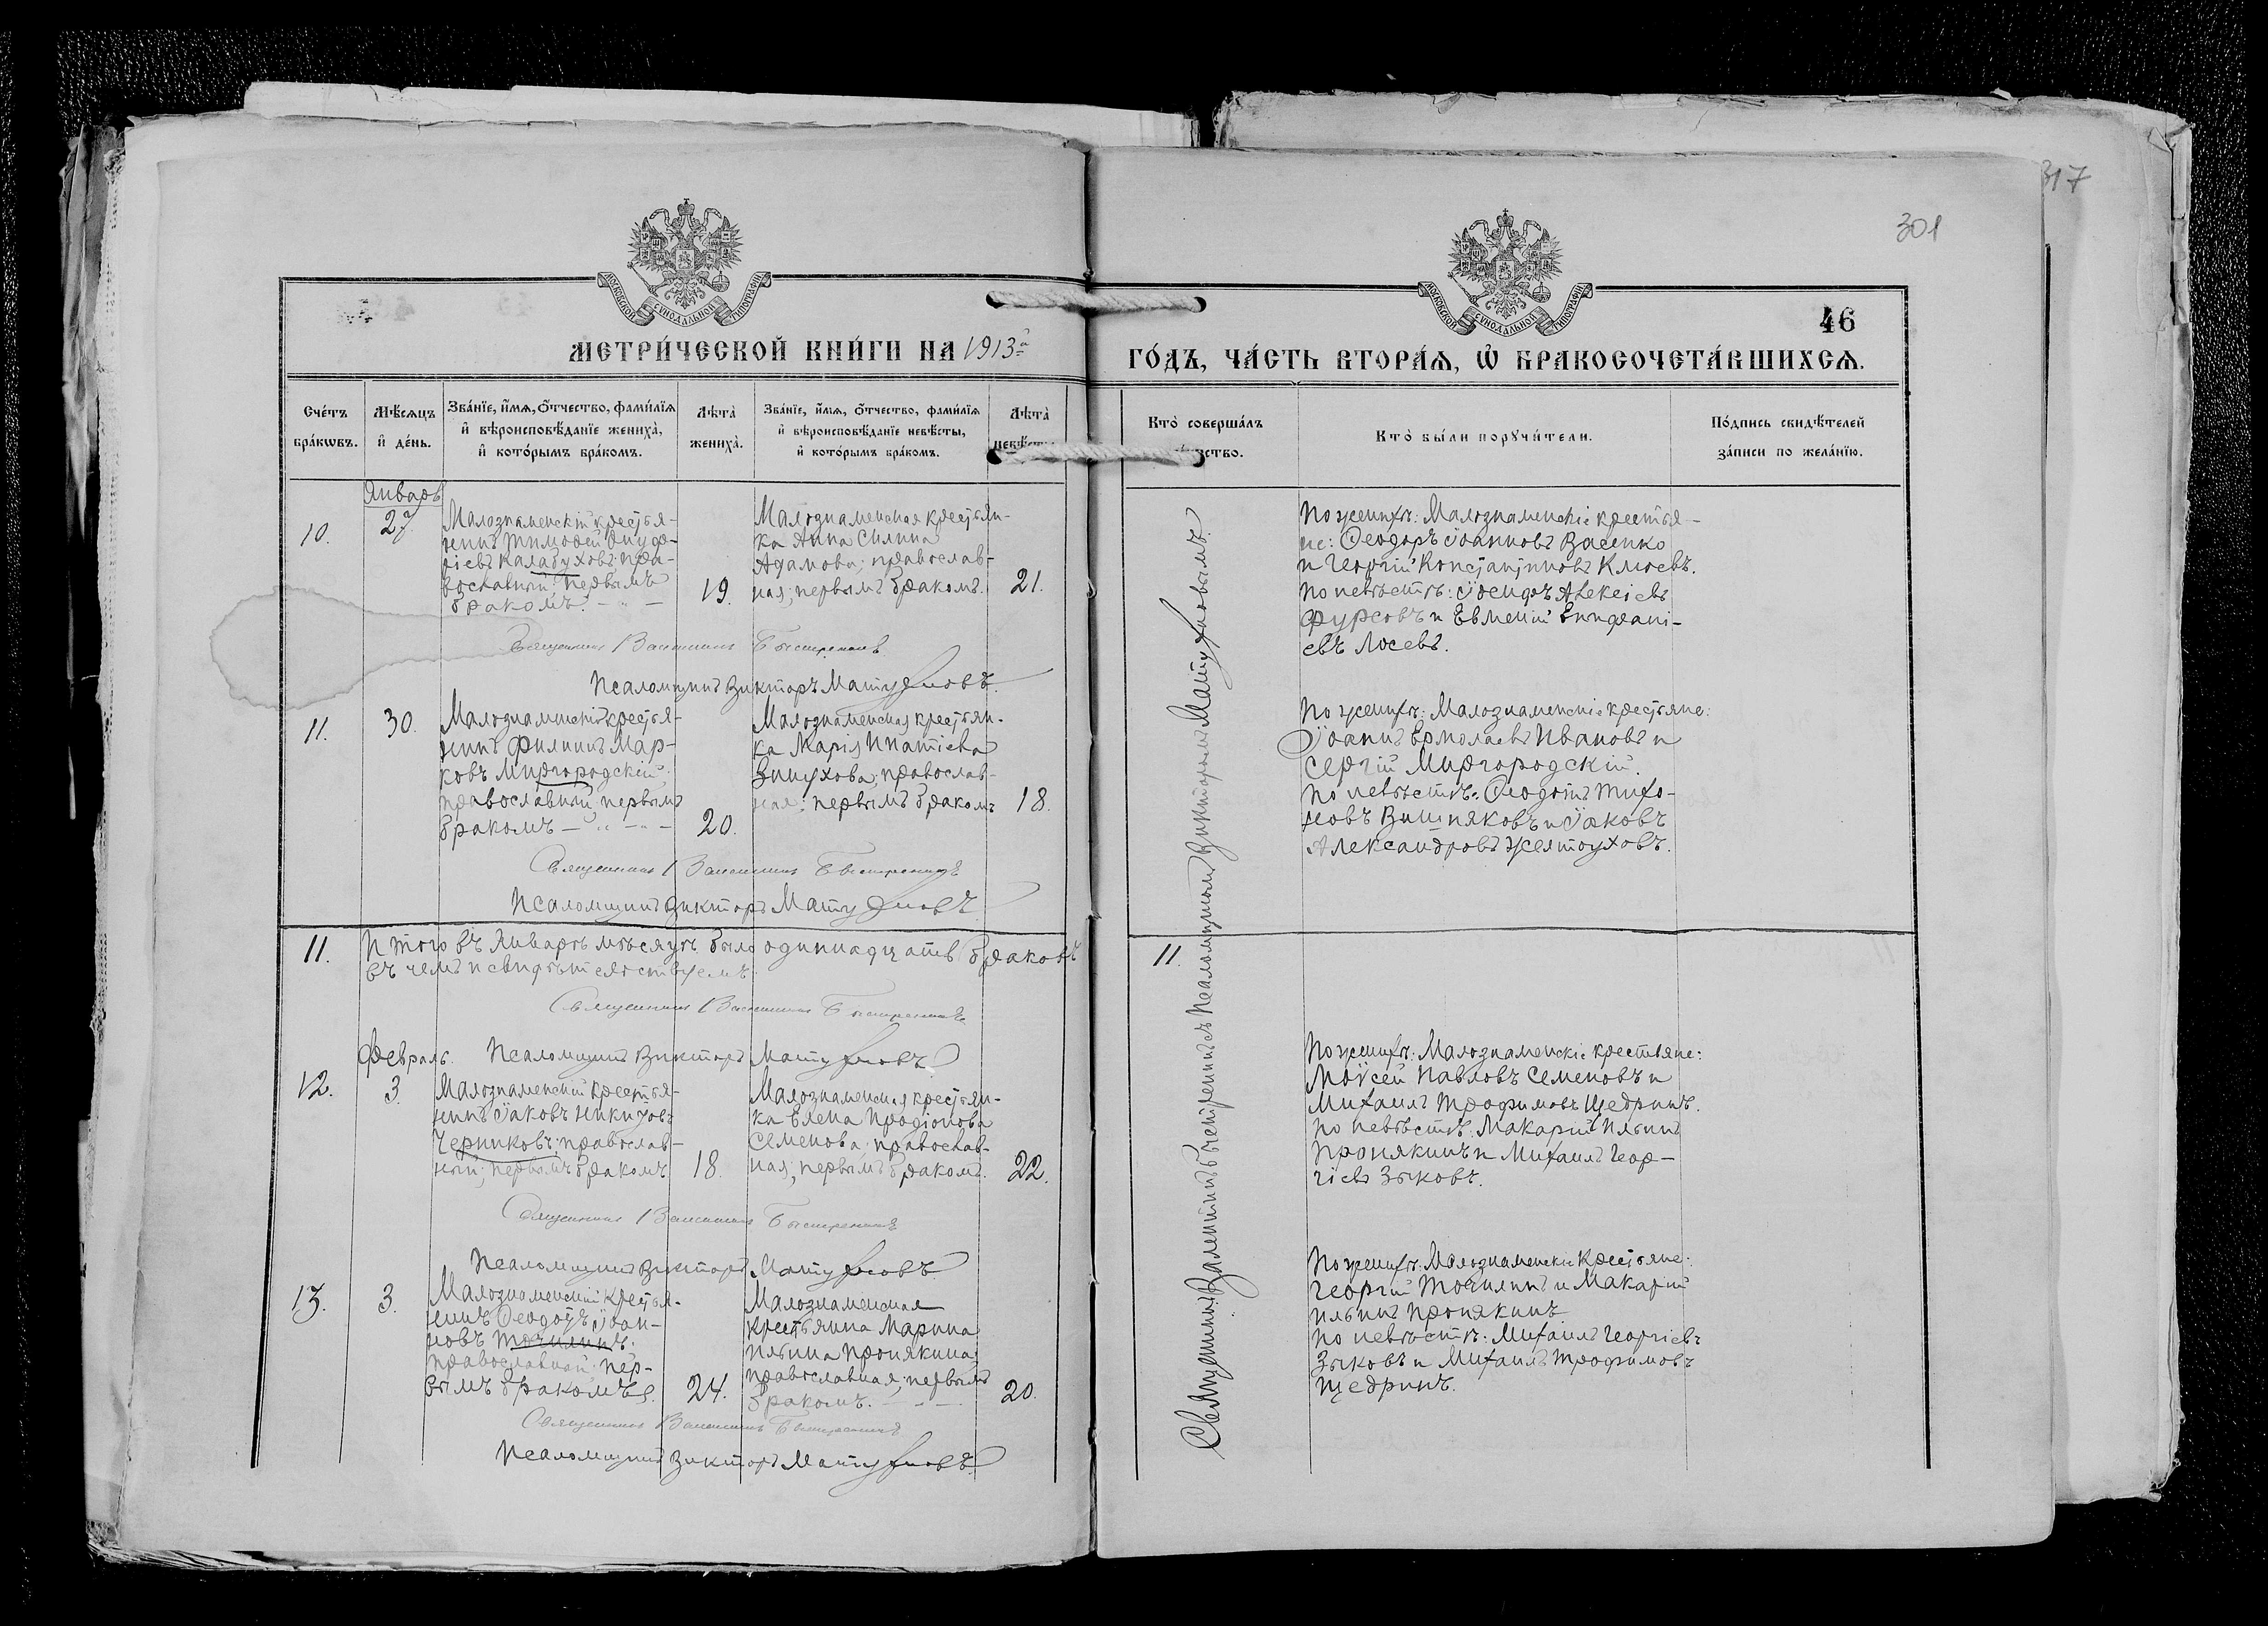 317
301
МОСКОВСКОЙ СѴНОДАЛЬНОЙ ТИПОГРАФІИ
МОСКОВСКОЙ СѴНОДАЛЬНОЙ ТИПОГРАФІИ
46
МЕТРИ́ЧЕСКОЙ КНИ́ГИ НА 1913й
ГО́ДЪ, ЧА́СТЬ ВТОРА́Ѧ, Ѡ҆ БРАКОСОЧЕТА́ВШИХСѦ.
Сче́тъ бра́кѡвъ.
Мѣ́сѧцъ и҆ де́нь.
Зва́нїе, и҆́мѧ, ѻ҆́тчество, фами́лїѧ и҆ вѣроисповѣ́данїе жениха̀, и҆ кото́рымъ бра́комъ.
Лѣта̀ жениха̀.
Зва́нїе, и҆́мѧ, ѻ҆́тчество, фами́лїѧ и҆ вѣроисповѣ́данїе невѣ́сты, и҆ кото́рымъ бра́комъ.
Лѣта̀ невѣ́сты.
Кто̀ соверша́лъ
Кто̀ бы́ли порꙋчи́тели.
По́дпись свидѣ́телей за́писи по жела́нїю.
Январь
10.
27
Малознаменскій крестья-
нинъ Тимоѳей Онуф-
ріевъ Калабуховъ; пра-
вославный; первымъ
бракомъ.
19.
Малознаменская крестьян-
ка Анна Силина
Адамова; православ-
ная; первымъ бракомъ.
21.
По женихѣ: Малознаменскіе крестья-
не: Ѳеодоръ Іоанновъ Васенко
и Георгій Константиновъ Клюевъ.
По невѣстѣ: Іосифъ Алексіевъ
Фурсовъ и Евменій Епифані-
евъ Лосевъ.
Священникъ Валентинъ Быстреницъ
Псаломщикъ Викторъ Матуфновъ.
11.
30.
Малознаменскій крестья-
нинъ Филиппъ Мар-
ковъ Миргородскій;
православный; первымъ
бракомъ
20.
Малознаменская крестьян-
ка Марія Ипатіева
Винухова; православ-
ная; первымъ бракомъ
18.
По женихѣ: Малознаменскіе крестьяне:
Іоаннъ Ермолаевъ Ивановъ и
Сергій Миргородскій.
По невѣстѣ: Ѳеодотъ Тихо-
новъ Вишняковъ и Іаковъ
Александровъ Желтоуховъ.
Священникъ Валентинъ Быстреницъ
Псаломщикъ Викторъ Матуфновъ
11.
Итого въ Январѣ мѣсяцѣ было одиннадцать браковъ
въ чемъ и свидѣтельствуемъ:
11.
Священникъ Валентинъ Быстреницъ
Псаломщикъ Викторъ Матуфновъ
Февраль.
12.
3.
Малознаменскій крестья-
нинъ Іаковъ Никифовъ
Черниковъ; православ-
ный; первымъ бракомъ
18.
Малознаменская крестьян-
ка Елена Иродіонова
Семенова; православ-
ная; первымъ бракомъ.
22.
По женихѣ: Малознаменскіе крестьяне:
Моѵсей Павловъ Семеновъ и
Михаилъ Трофимовъ Щедринъ.
По невѣстѣ: Макарій Ильинъ
Пронякинъ и Михаилъ Геор-
гіевъ Зыковъ.
Священникъ Валентинъ Быстреницъ
Псаломщикъ Викторъ Матуфновъ
13.
3.
Малознаменскій крестья-
нинъ Ѳеодотъ Іоан-
новъ Точилинъ;
православный; пер-
вымъ бракомъ
24.
Малознаменская
крестьянка Марина
Ильина Пронякина;
православная; первымъ
бракомъ.
20.
По женихѣ: Малознаменскіе крестьяне:
Георгій Точилинъ и Макарій
Ильинъ Пронякинъ
По невѣстѣ: Михаилъ Георгіевъ
Зыковъ и Михаилъ Трофимовъ
Щедринъ.
Священникъ Валентинъ Быстреницъ
Псаломщикъ Викторъ Матуфновъ
Священникъ Валентинъ Быстреницъ съ Псаломщикомъ Викторомъ Матуфновымъ